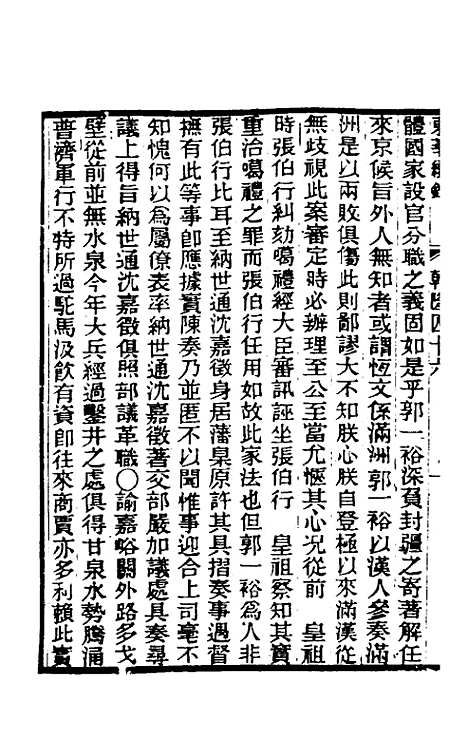 東華續錄　乾隆四十六
體國家設官分職之義固如是乎郭一裕深負封疆之寄著解任
來京候旨外人無知者或謂恆文係滿洲郭一裕以漢人參奏滿
洲是以兩敗俱傷此則鄙謬大不知朕心朕自登極以來滿漢從
無歧視此案審定時必辦理至公至當尤愜其心況從前　皇祖
時張伯行糾劾噶禮經大臣審訊誣坐張伯行　皇祖察知其實
重治噶禮之罪而張伯行任用如故此家法也但郭一裕爲人非
張伯行比耳至納世通沈嘉徵身居藩臬原許其具摺奏事遇督
撫有此等事卽應據實陳奏乃並匿不以聞惟事迎合上司毫不
知愧何以爲屬僚表率納世通沈嘉徵著交部嚴加議處具奏尋
議上得旨納世通沈嘉徵俱照部議革職〇諭嘉峪關外路多戈
壁從前並無水泉今年大兵經過鑿井之處俱得甘泉水勢騰涌
普濟軍行不特所過駝馬汲飲有資卽往來商賈亦多利賴此實